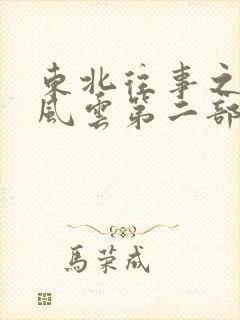 東北往事之
風雲第二部
馬荣成